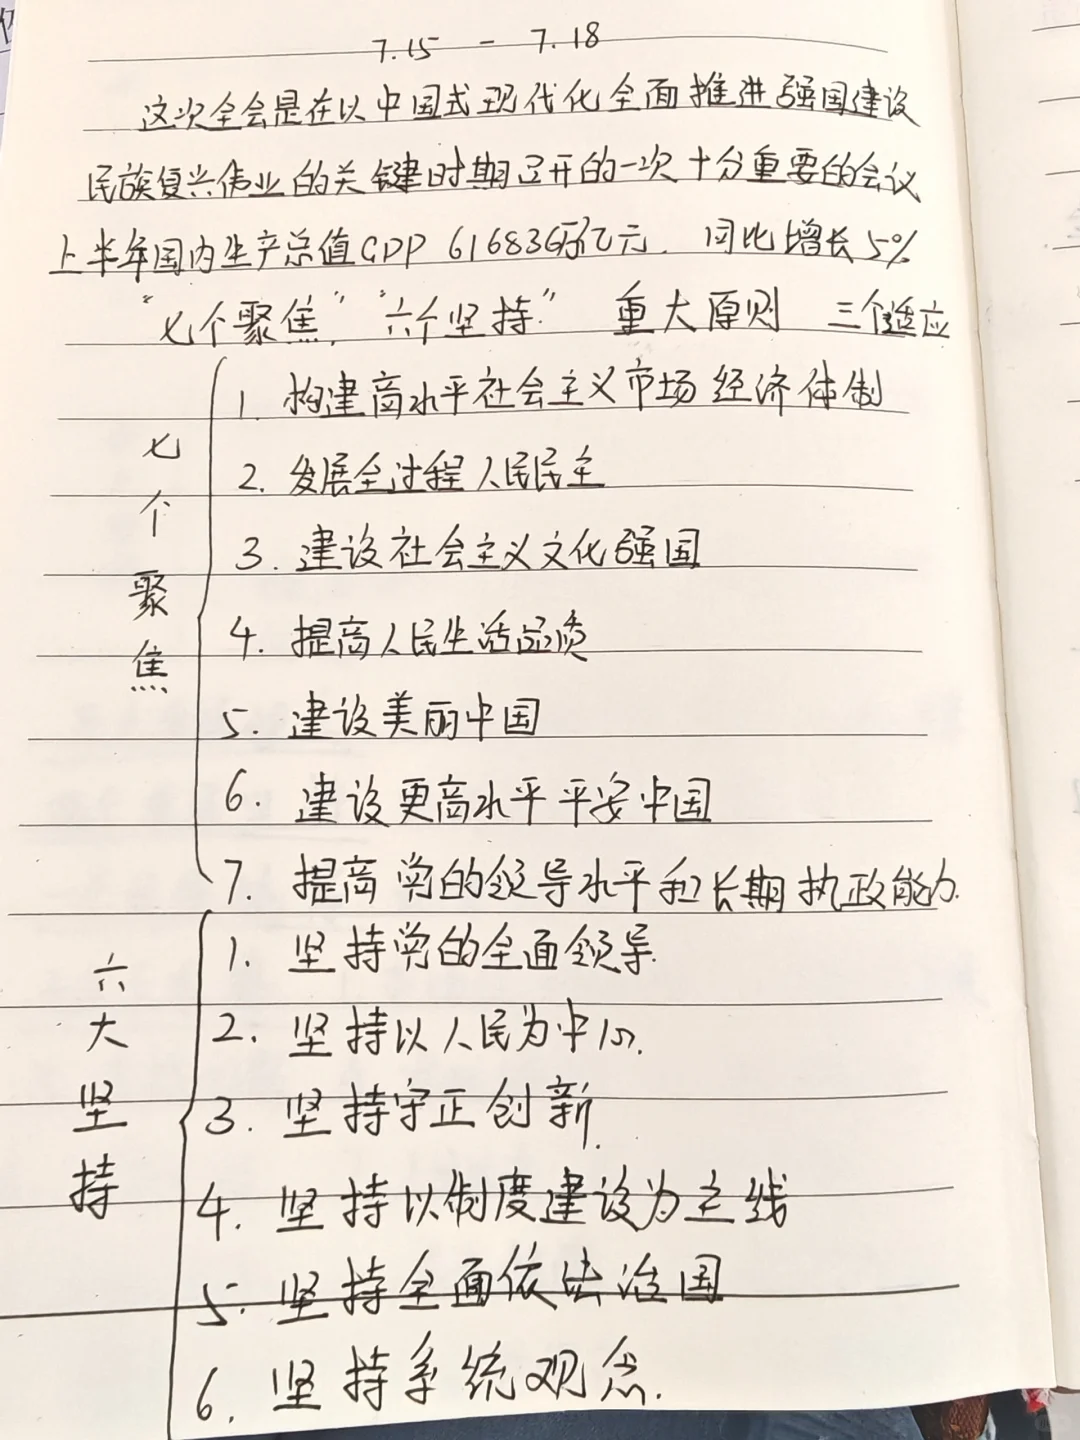 7.15 - 7.18
这次全会是在以中国式现代化全面推进强国建设
民族复兴伟业的关键时期召开的一次十分重要的会议
上半年国内生产总值GDP 616836亿元. 同比增长5%
"七个聚焦","六个坚持" 重大原则 三个适应
七个聚焦
1. 构建高水平社会主义市场经济体制
2. 发展全过程人民民主
3. 建设社会主义文化强国
4. 提高人民生活品质
5. 建设美丽中国
6. 建设更高水平平安中国
7. 提高党的领导水平和长期执政能力.
六大坚持
1. 坚持党的全面领导.
2. 坚持以人民为中心.
3. 坚持守正创新.
4. 坚持以制度建设为主线
5. 坚持全面依法治国
6. 坚持系统观念.